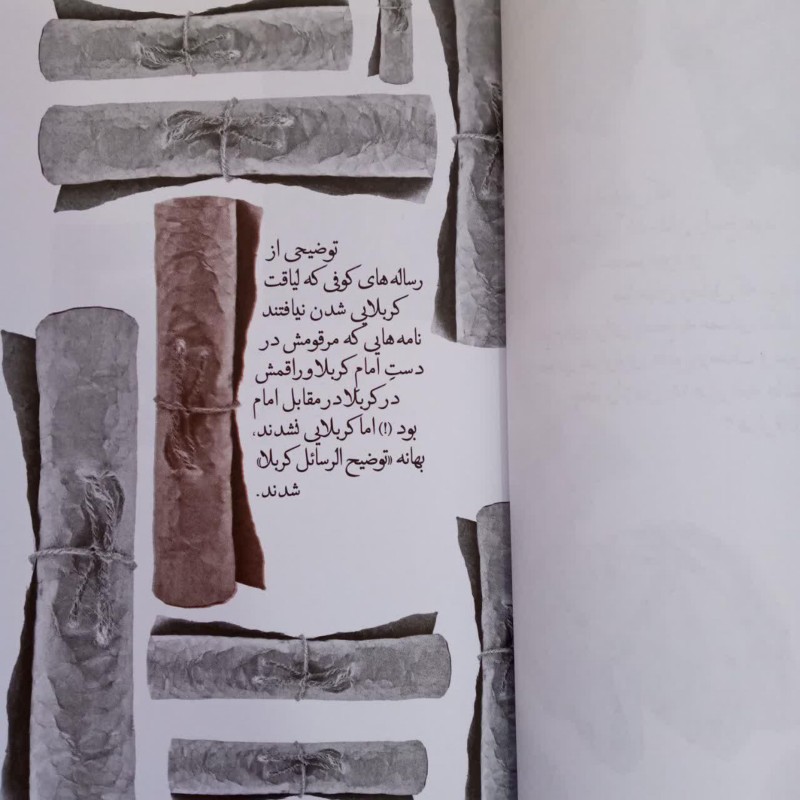 توضیحی از
رساله‌های کوفی که لیاقت
کربلایی شدن نیافتند
نامه‌هایی که مرقومش در
دستِ امامِ کربلا و راقمش
در کربلا در مقابل امام
بود (!) اما کربلایی نشدند،
بهانه «توضیح الرسائل کربلا»
شدند.